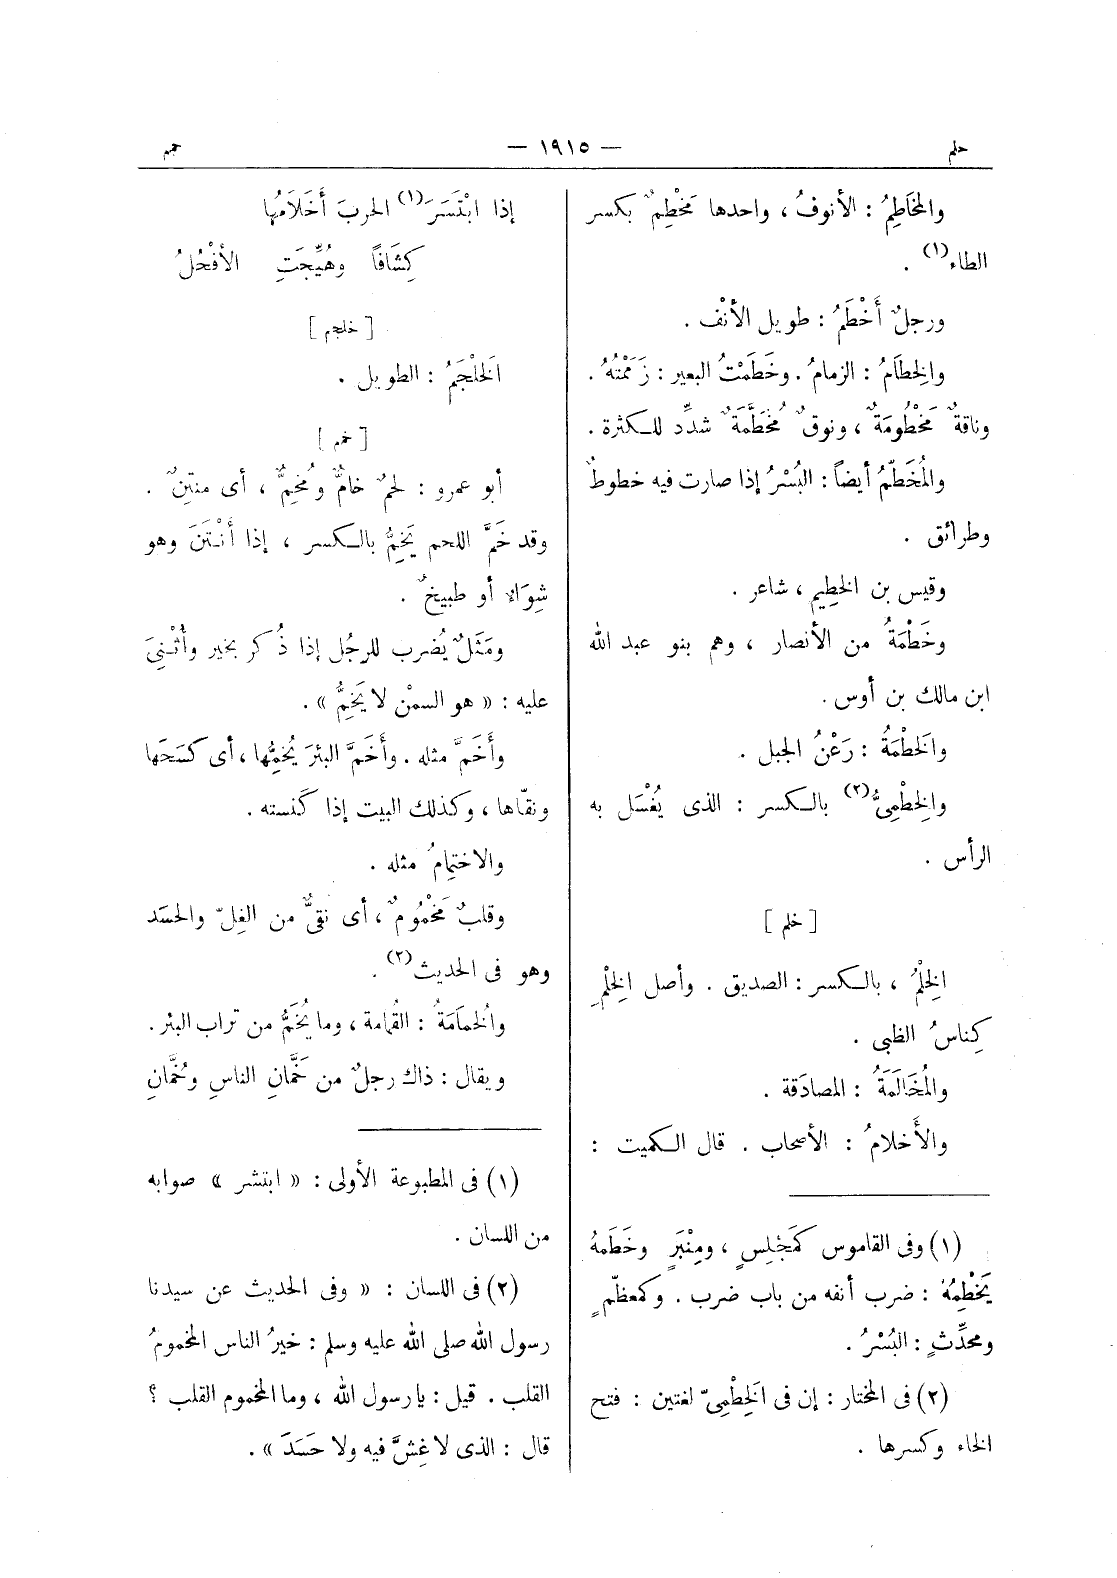 حلم
— ١٩١٥ —
خمم
والمَخَاطِمُ : الأنوفُ ، واحدها مَخْطِمٌ بكسر
الطاء(١) .
ورجلٌ أَخْطَمُ : طويل الأنْف .
والخِطَامُ : الزمامُ . وخَطَمْتُ البعير : زَمَمْتُهُ .
وناقةٌ مَخْطُومَةٌ ، ونوقٌ مُخَطَّمَةٌ شدِّد للكثرة .
والمُخَطَّمُ أيضاً : البُسْرُ إذا صارت فيه خطوطٌ
وطرائق .
وقيس بن الخطِيمِ ، شاعر .
وخَطْمَةُ من الأنصار ، وهم بنو عبد الله
ابن مالك بن أوس .
والخَطْمَةُ : رَعْنُ الجبل .
والخِطْمِىُّ(٢) بالكسر : الذى يُغْسَل به
الرأس .
[ خلم ]
الخِلْمُ ، بالكسر : الصديق . وأصل الخِلْمِ
كِناسُ الظبى .
والمُخَالَمَةُ : المصادَقة .
والأَخلامُ : الأصحاب . قال الكميت :
(١) وفى القاموس كَمَجْلِسٍ ، ومِنْبَرٍ وخَطَمهُ
يَخْطِمُهُ : ضرب أنفه من باب ضرب . وكمعظّمٍ
ومحدِّثٍ : البُسْرُ .
(٢) فى المختار : إن فى الخِطْمِىّ لغتين : فتح
الخاء وكسرها .
إذا ابْتَسَرَ(١) الحربَ أَخَلَامُها
كِشَافًا وهُيِّجَتِ الأفْحُلُ
[ خلجم ]
الَخلْجَمُ : الطويل .
[ خمم ]
أبو عمرو : لحمٌ خامٌّ ومُخِمٌّ ، أى منتِنٌ .
وقد خَمَّ اللحم يَخِمُّ بالكسر ، إذا أَنْتَنَ وهو
شِوَاءٌ أو طبيخٌ .
ومَثَلٌ يُضرب للرجُل إذا ذُكر بخير وأُثْنِىَ
عليه : « هو السمْن لا يَخِمُّ » .
وأَخَمَّ مثله . وأَخَمَّ البئرَ يُخِمُّها ، أى كسَحَها
ونقّاها ، وكذلك البيت إذا كَنسته .
والاختِمامُ مثله .
وقلبٌ مَخْمُومٌ ، أى نقىٌّ من الغِلّ والحسَد
وهو فى الحديث(٢) .
والخُمَامَةُ : القُمامة ، وما يُخَمُّ من تراب البئر .
ويقال : ذاك رجلٌ من خَمَّانِ الناسِ وخُمَّانِ
(١) فى المطبوعة الأولى : « ابتشر » صوابه
من اللسان .
(٢) فى اللسان : « وفى الحديث عن سيدنا
رسول الله صلى الله عليه وسلم : خيرُ الناس المخمومُ
القلب . قيل : يا رسول الله ، وما المخموم القلب ؟
قال : الذى لا غِشَّ فيه ولا حَسَدَ » .